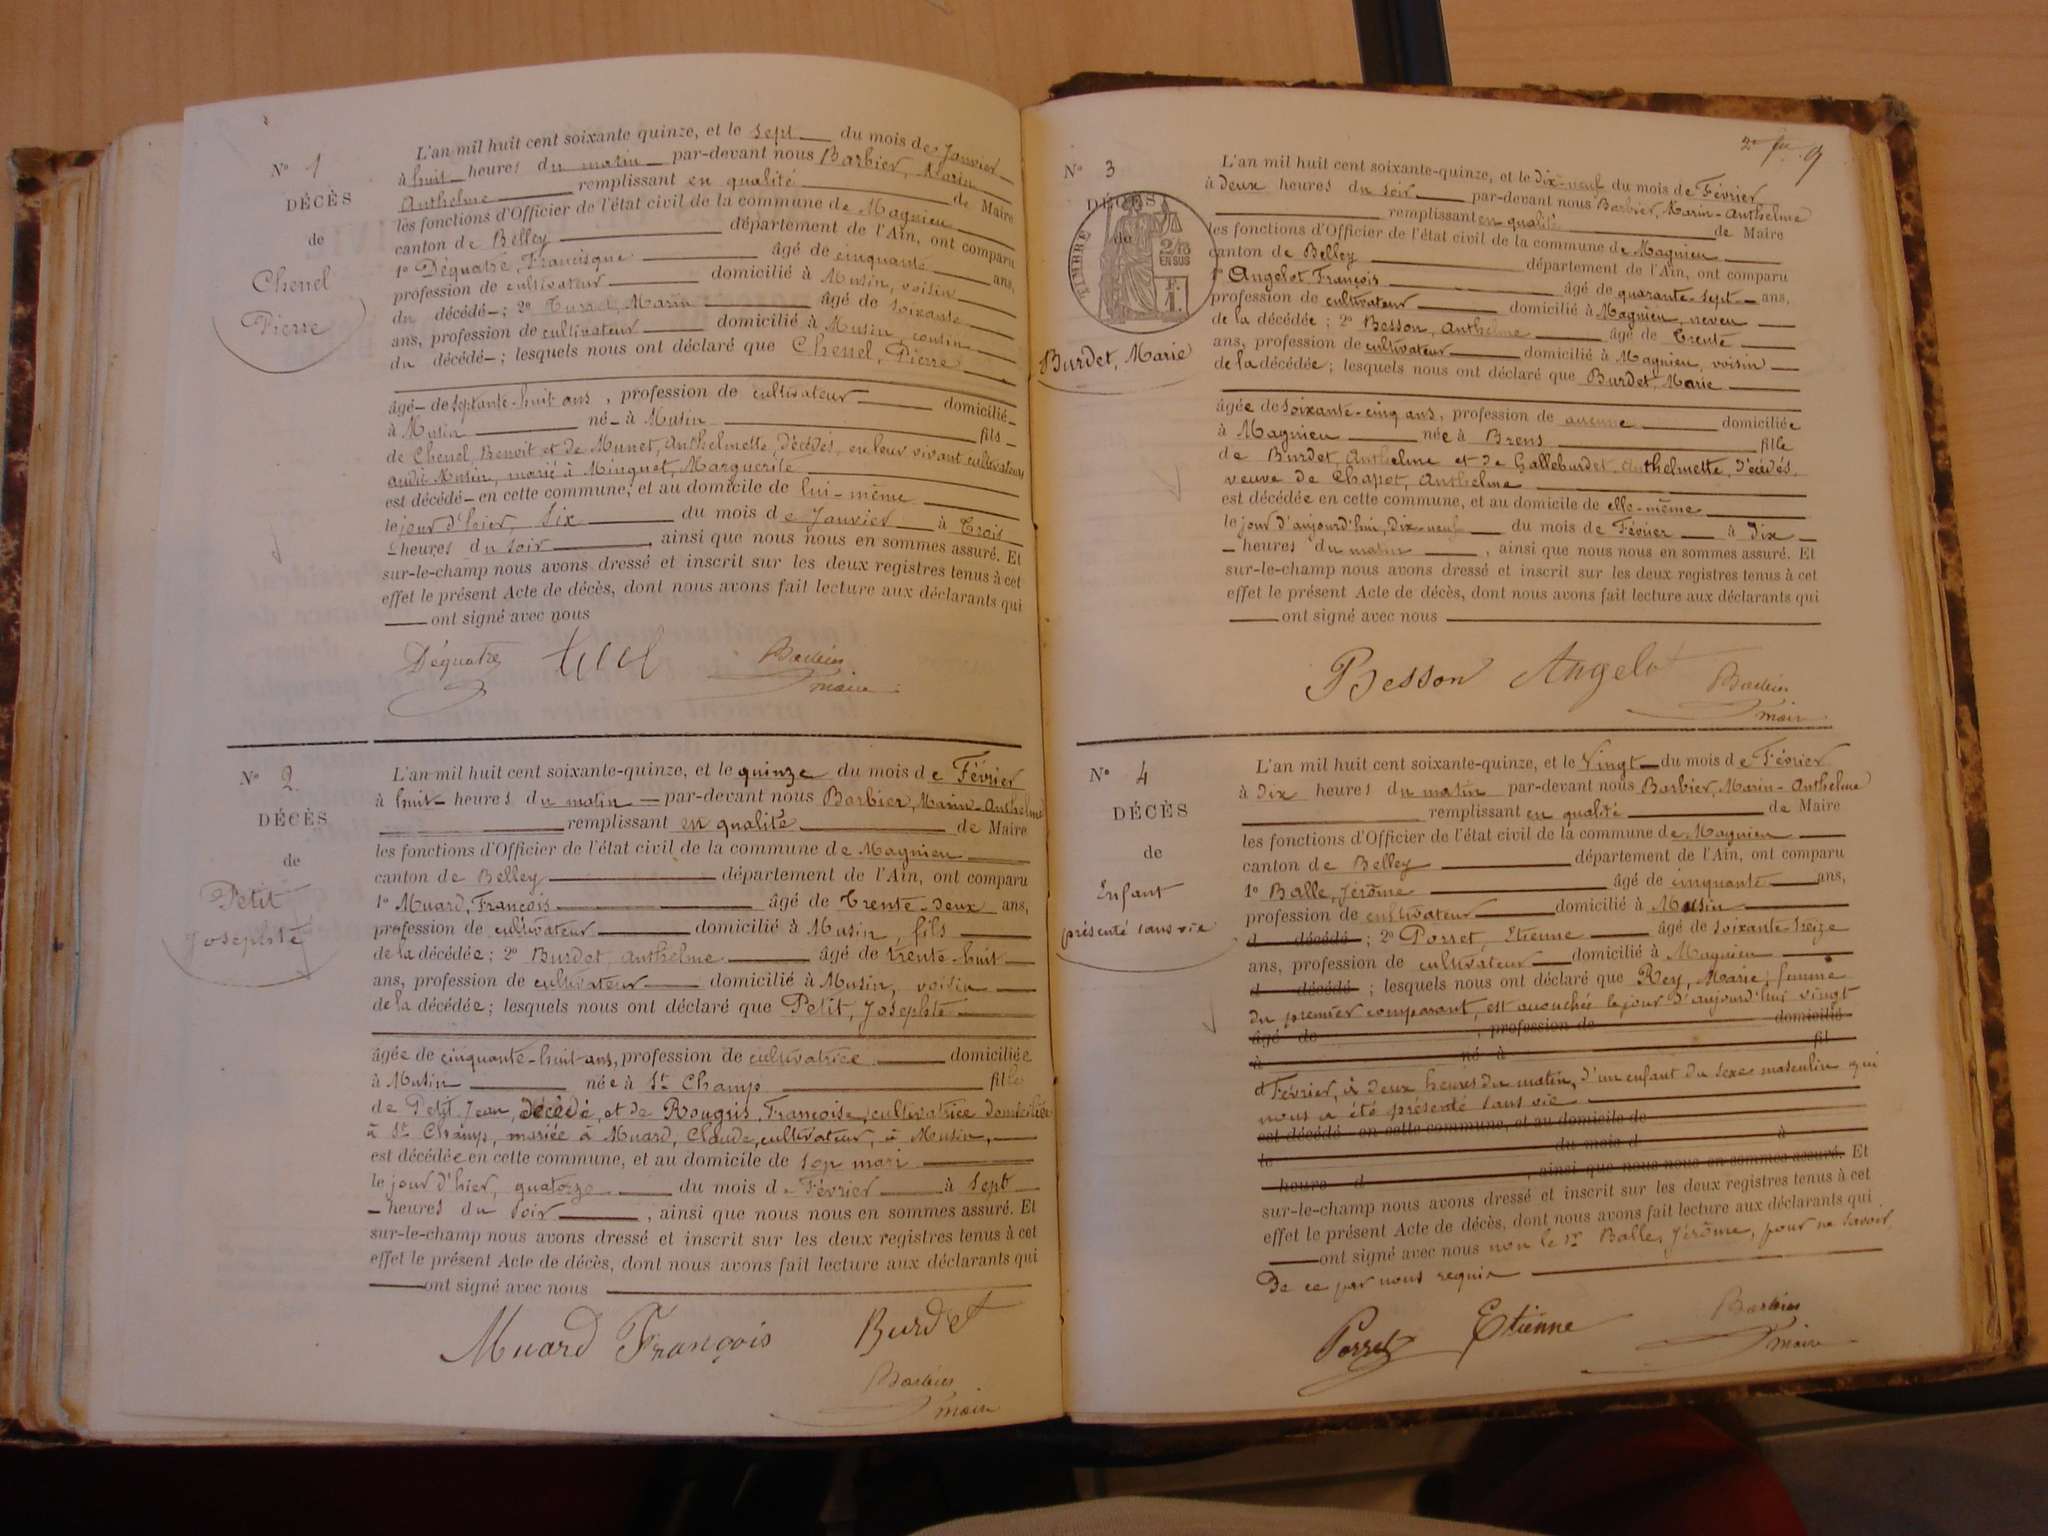 N° 1
DÉCÈS
de
Chenel
Pierre
L'an mil huit cent soixante quinze, et le sept du mois de Janvier
à huit heures du matin par-devant nous Barbier, Marin
Anthelme remplissant en qualité de Maire
les fonctions d'Officier de l'état civil de la commune de Magnieu
canton de Belley département de l'Ain, ont comparu
1° Déquatre, Francisque âgé de cinquante ans,
profession de cultivateur domicilié à Musin, voisin
du décédé ; 2° Marin âgé de soixante
ans, profession de cultivateur domicilié à Musin, cousin
du décédé ; lesquels nous ont déclaré que Chenel, Pierre
âgé de septante-huit ans, profession de cultivateur domicilié
à Musin né à Musin fils
de Chenel, Benoit et de Munet, Anthelmette, décédés, en leur vivant cultivateurs
audit Musin, marié à Minguet, Marguerite
est décédé en cette commune, et au domicile de lui-même
le jour d'hier, Six du mois de Janvier à Trois
heures du soir , ainsi que nous nous en sommes assuré. Et
sur-le-champ nous avons dressé et inscrit sur les deux registres tenus à cet
effet le présent Acte de décès, dont nous avons fait lecture aux déclarants qui
ont signé avec nous
Déquatre Barbier
maire
N° 2
DÉCÈS
de
Petit
Josephte
L'an mil huit cent soixante-quinze, et le quinze du mois de Février
à huit heures du matin par-devant nous Barbier, Marin-Anthelme
remplissant en qualité de Maire
les fonctions d'Officier de l'état civil de la commune de Magnieu
canton de Belley département de l'Ain, ont comparu
1° Muard, François âgé de Trente-deux ans,
profession de cultivateur domicilié à Musin, fils
de la décédée ; 2° Burdet, Anthelme âgé de trente-huit
ans, profession de cultivateur domicilié à Musin, voisin
de la décédée ; lesquels nous ont déclaré que Petit, Josephte
âgée de cinquante-huit ans, profession de cultivatrice domiciliée
à Musin née à St Champ fille
de Petit Jean, décédé, et de Rougris, Françoise, cultivatrice domiciliée
à St Champ, mariée à Muard, Claude, cultivateur, à Musin,
est décédée en cette commune, et au domicile de son mari
le jour d'hier, quatorze du mois de Février à sept
heures du soir , ainsi que nous nous en sommes assuré. Et
sur-le-champ nous avons dressé et inscrit sur les deux registres tenus à cet
effet le présent Acte de décès, dont nous avons fait lecture aux déclarants qui
ont signé avec nous
Muard François Burdet
Barbier
maire
N° 3
DÉCÈS
de
TIMBRE
2/10
EN SUS
Burdet, Marie
L'an mil huit cent soixante-quinze, et le dix-neuf du mois de Février
à deux heures du soir par-devant nous Barbier, Marin-Anthelme
remplissant en qualité de Maire
les fonctions d'Officier de l'état civil de la commune de Magnieu
canton de Belley département de l'Ain, ont comparu
1° Angelot François âgé de quarante-sept ans,
profession de cultivateur domicilié à Magnieu, neveu
de la décédée ; 2° Besson, Anthelme âgé de Trente
ans, profession de cultivateur domicilié à Magnieu, voisin
de la décédée ; lesquels nous ont déclaré que Burdet, Marie
âgée de soixante-cinq ans, profession de aucune domiciliée
à Magnieu née à Brens fille
de Burdet, Anthelme et de Galleburdet, Anthelmette, décédés.
veuve de Chapot, Anthelme
est décédée en cette commune, et au domicile de elle-même
le jour d'aujourd'hui, dix-neuf du mois de Février à Dix
heures du matin , ainsi que nous nous en sommes assuré. Et
sur-le-champ nous avons dressé et inscrit sur les deux registres tenus à cet
effet le présent Acte de décès, dont nous avons fait lecture aux déclarants qui
ont signé avec nous
Besson Angelot Barbier
maire
N° 4
DÉCÈS
de
Enfant
présenté sans vie
L'an mil huit cent soixante-quinze, et le Vingt du mois de Février
à Dix heures du matin par-devant nous Barbier, Marin-Anthelme
remplissant en qualité de Maire
les fonctions d'Officier de l'état civil de la commune de Magnieu
canton de Belley département de l'Ain, ont comparu
1° Balle, Jérôme âgé de cinquante ans,
profession de cultivateur domicilié à Musin
d décédé ; 2° Porret, Etienne âgé de soixante-treize
ans, profession de cultivateur domicilié à Magnieu
d décédé ; lesquels nous ont déclaré que Rey, Marie, femme
du premier comparant, est accouchée le jour d'aujourd'hui vingt
âgé de , profession de domicilié
à né à fil
Février, à deux heures du matin, d'un enfant du sexe masculin qui
nous a été présenté sans vie
est décédé en cette commune, et au domicile de
le du mois d à
heure d , ainsi que nous nous en sommes assuré. Et
sur-le-champ nous avons dressé et inscrit sur les deux registres tenus à cet
effet le présent Acte de décès, dont nous avons fait lecture aux déclarants qui
ont signé avec nous non le Sr Balle, Jérôme, pour ne savoir,
De ce par nous requis
Porret Etienne Barbier
maire